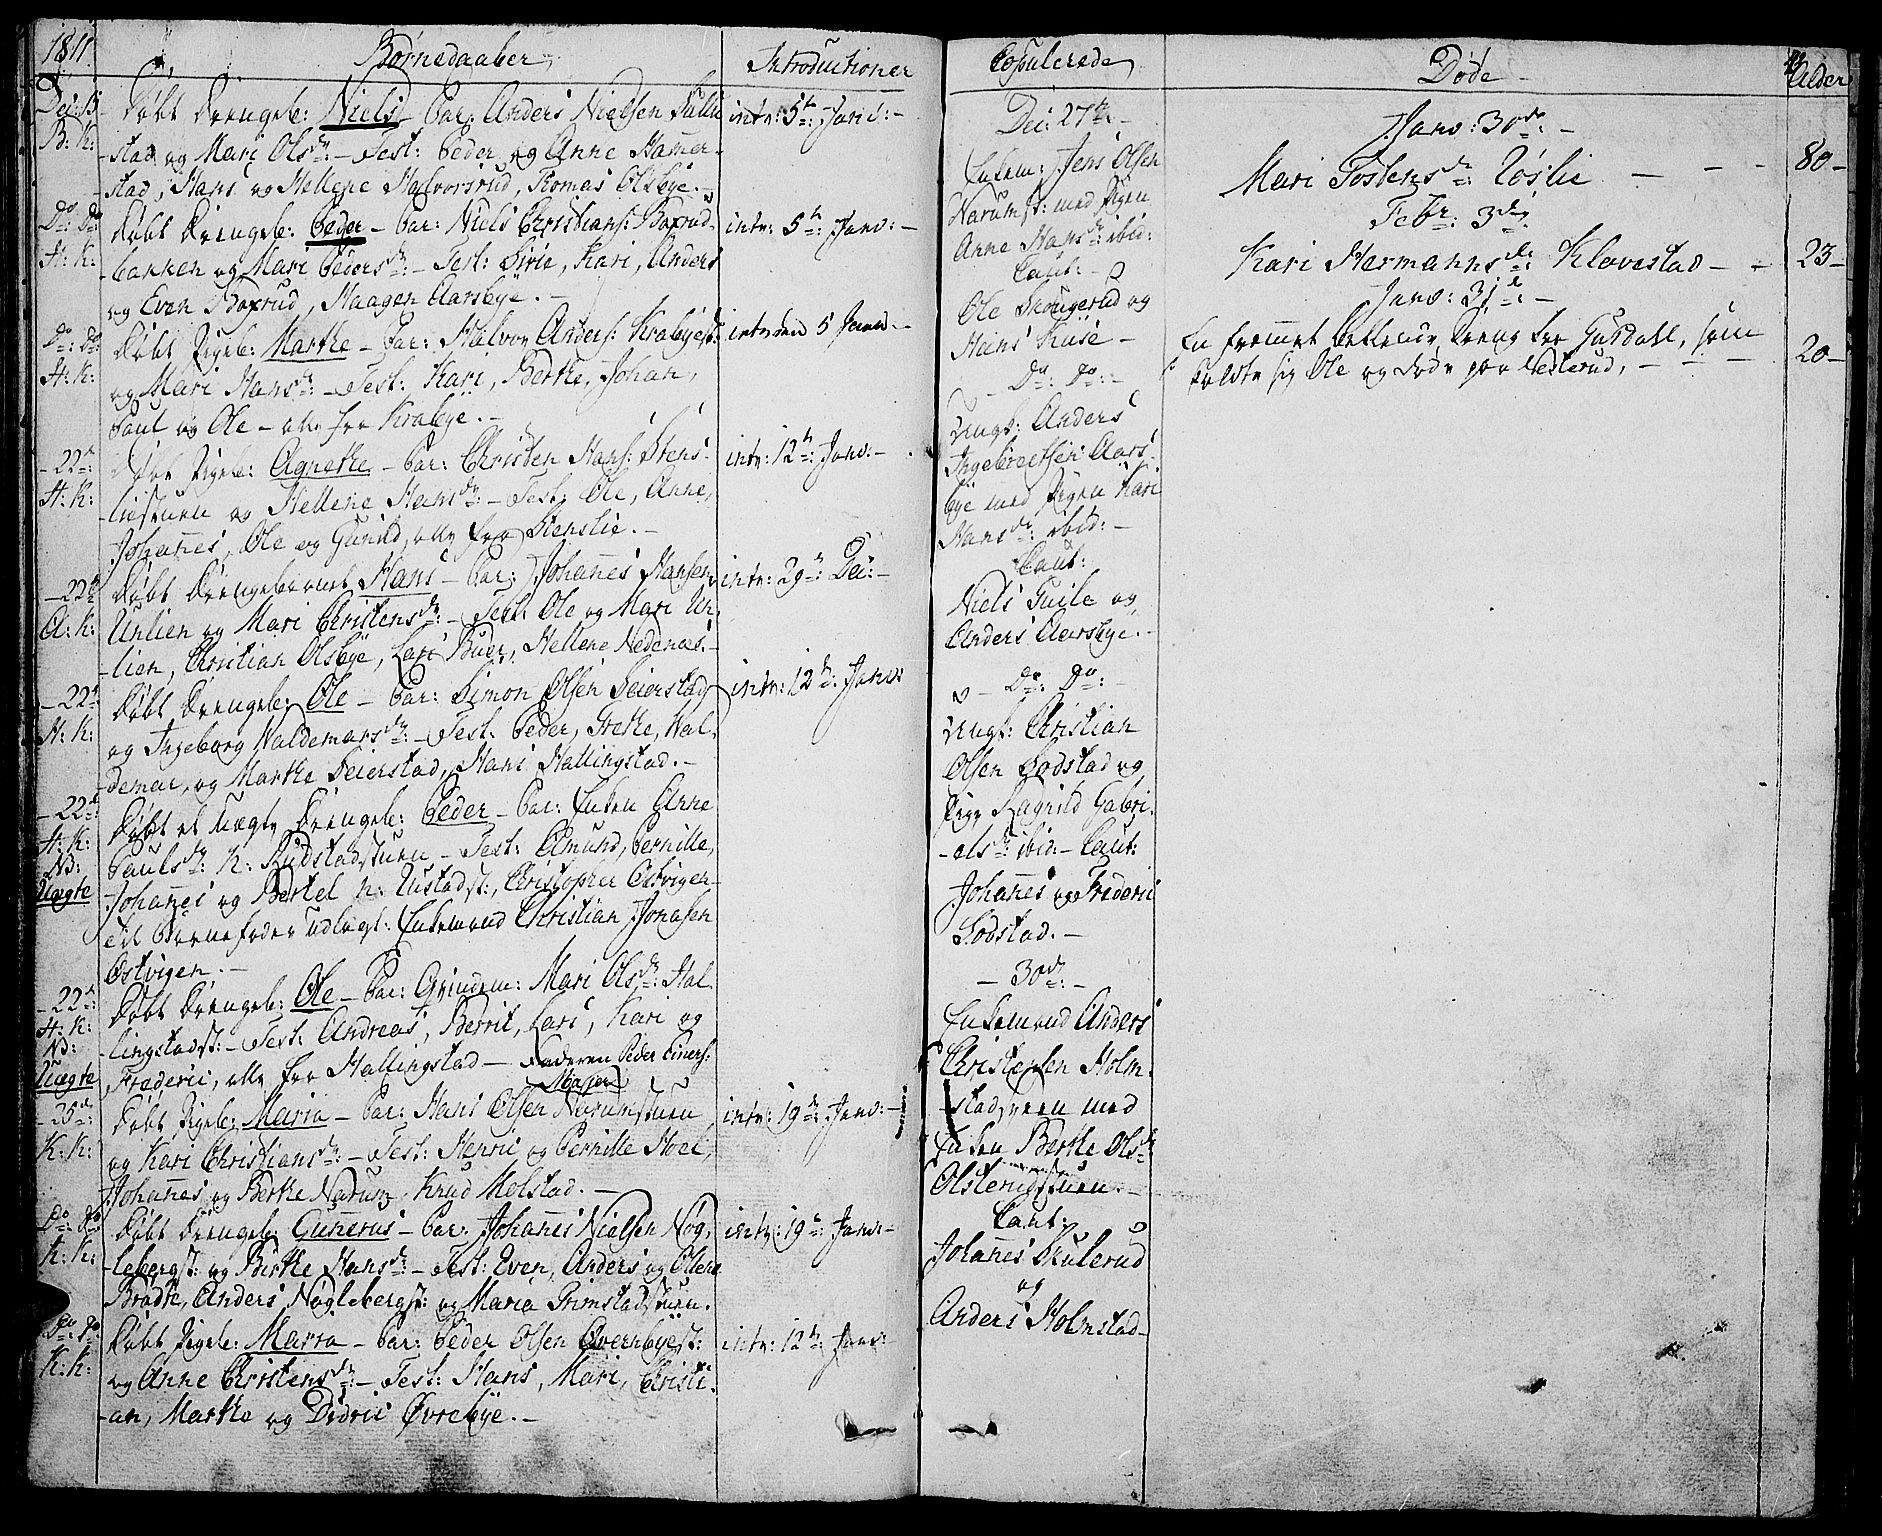 1811.
Børnedaaber
Introductioner
Dec: 15
B: K:
Døbt Drengeb: Niels - Par: Anders Nielsen
stad og Mari Olsdr: - Test: Peder og Anne Hamer-
stad, Hans og Hellene Halvorsrud, Thomas Olsbye. -
intr: 5te: Janv: -
Do: Do
H: K:
Døbt Drengeb: Peder - Par: Niels Christians: Boxrud-
bakken og Mari Pedersdr: - Test: Siri, Kari, Anders
og Even Boxrud, Haagen Aarsbye. -
intr: 5te Janv: -
Do: Do
H: K:
Døbt Pigeb: Marthe - Par: Halvor Anders: Krabyest:
og Mari Hansdr: - Test: Kari, Berthe, Johan,
Paul og Ole - alle fra Krabye. -
intr: den 5 Janv -
- 22de:
H: K:
Døbt Pigeb: Agnethe - Par: Christen Hans: Stens-
liestuen og Hellene Hansdr: - Test: Ole, Anne,
Johannes, Ole og Gunild, alle fra Stenslie. -
intr: 12te: Janv: -
- 22de
A: K:
Døbt Drengebarnet Hans - Par: Johannes Hansen
Unlien og Mari Christensdr: - Test: Ole og Mari Un-
lien, Christian Olsbye, Lars Buer, Hellene Nedenæs. -
intr: 29de: Dec: -
- 22de
H: K:
Døbt Drengeb: Ole - Par: Simon Olsen Seierstad
og Ingeborg Waldemarsdr: - Test: Peder, Grethe, Wal-
demar, og Marthe Seierstad, Hans Hallingstad. -
intr: 12te: Janv:
- 22de:
H: K:
NB:
Uægte
Døbt et uægte Drengeb: Peder - Par: Enken Anne
Paulsdr: N: Rudstadstuen - Test: Amund, Pernille,
Johannes og Bertel N: Rustadst:, Christopher Østvigen -
til Barnefader udlagt: Enkemand Christian Jonasen
Østvigen. -
- 22de:
H: K:
NB:
Uægte
Døbt Drengeb: Ole - Par: Qvindem: Mari Olsdr: Hal-
lingstadst: - Test: Andreas, Berrit, Lars, Kari og
Frederic, alle fra Hallingstad - Faderen Peder Einers:
- 26de:
K: K:
Døbt Pigeb: Maria - Par: Hans Olsen Narumstuen
og Kari Christiansdr: - Test: Henric og Pernille Hoel,
Johannes og Berthe Narum, Knud Molstad. -
intr: 19de: Janv: -
Do: Do
K: K:
Døbt Drengeb: Gunerus - Par: Johannes Nielsen Nøg-
lebergst: og Birthe Hansdr: - Test: Even, Anders og Olene
Brodre, Anders Nøglebergst: og Maria Grimstadstuen.
intr: 19de: Janv: -
Do: Do
K: K:
Døbt Pigeb: Maria - Par: Peder Olsen Øvrebyest:
og Anne Christensdr: - Test: Hans, Mari, Christi-
an, Marthe og Didric Øvrebye. -
intr: 12te: Janv:
Copulerede
Dec: 27de: -
Enkem: Jens Olsen
Narumst: med Pigen
Anne Hansdr: ibid:
Caut: -
Ole Skougerud og
Hans Kuse -
- Do: Do: -
Ungk: Anders
Ingebrectsen Aars-
bye med Pigen Kari
Hansdr: ibid: -
Caut:
Niels Guile og
Anders Aarsbye. -
- Do: Do: -
Ungk: Christian
Olsen Sodstad og
Pige Ragnild Gabri-
elsdr: ibid: - Caut:
Johannes og Frederic
Sodstad. -
- 30de: -
Enkemand Anders
Christensen Holm-
stadstuen med
Enken Berthe Olsdr:
Olsterudstuen. -
Caut:
Johannes Skulerud
og
Anders Holmstad -
Døde -
Alder
Janv: 30de: -
Mari Tostensdr: Røslie - - - 80 -
Febr: 3de:
Kari Hermannsdr: Klavestad - - 23 -
Janv: 31te: -
En fremmet betlende Dreng fra Gusdahl, som
kaldte sig Ole og døde paa Nesterud, - - 20 -